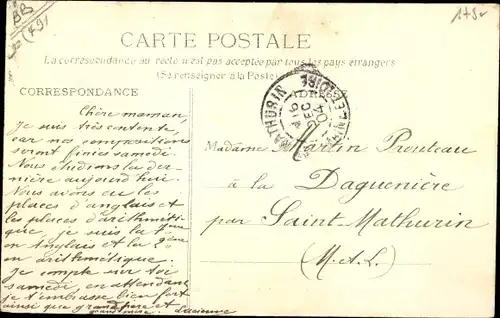 CARTE POSTALE
La correspondance au recto n'est pas acceptée par tous les pays étrangers
(Se renseigner à la Poste)
CORRESPONDANCE
ADRESSE
Chère maman,
Je suis très contente,
car nos compositions
seront finies samedi.
Nous étudions la der-
nière aujourd'hui.
Nous avons eu les
places d'anglais et
les places d'arithméti-
que, je suis la 1ère
en Anglais et la 2ème
en arithmétique.
Je compte sur toi
samedi, en attendant
je t'embrasse bien fort
ainsi que grand-père et
grand'mère. Lucienne
Madame Martin Prouteau
à la Daguenière
par Saint-Mathurin
(M.-et-L.)
MATHURIN
16
DEC
04